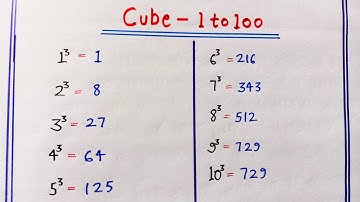 Cube – 1 to 100
1³ = 1
2³ = 8
3³ = 27
4³ = 64
5³ = 125
6³ = 216
7³ = 343
8³ = 512
9³ = 729
10³ = 729